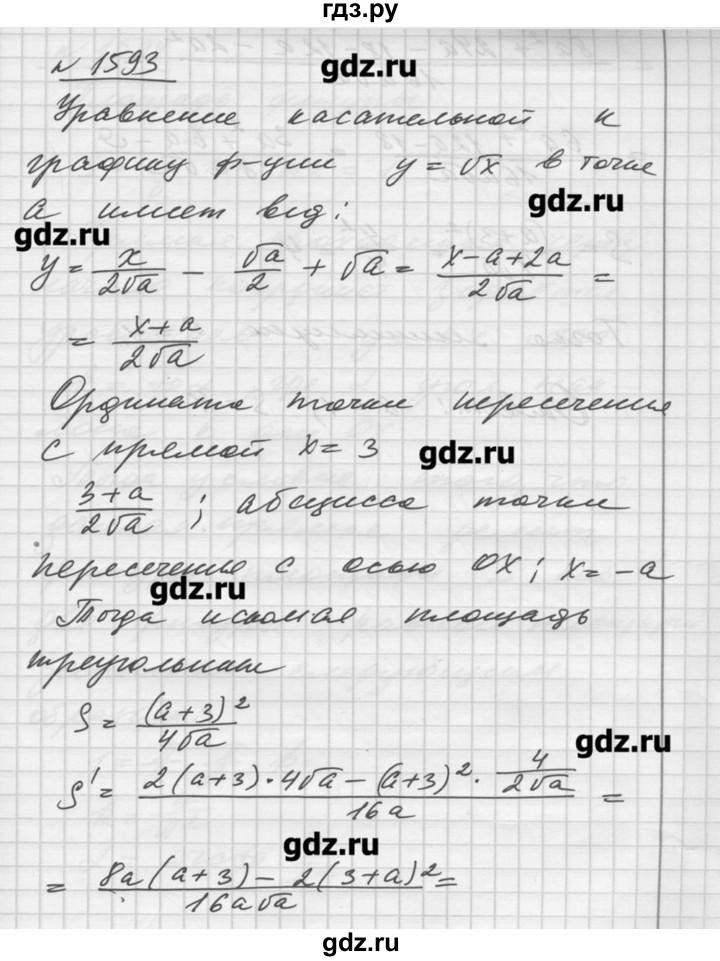 гдз.ру
№ 1593
gdz.ru
Уравнение касательной к
графику ф-ции y = √x в точке
gdz.ru
a имеет вид:
gdz.ru
y = x/(2√a) - √a/2 + √a = (x-a+2a)/(2√a) =
= (x+a)/(2√a)
Ордината точки пересечения
с прямой x = 3
gdz.ru
(3+a)/(2√a) ; абсцисса точки
пересечения с осью OX; x = -a
gdz.ru
Тогда искомая площадь
треугольник
S = (a+3)²/(4√a)
gdz.ru
S' = (2(a+3)·4√a - (a+3)²·4/(2√a))/(16a) =
gdz.ru
= (8a(a+3) - 2(3+a)²)/(16a√a) =
gdz.ru